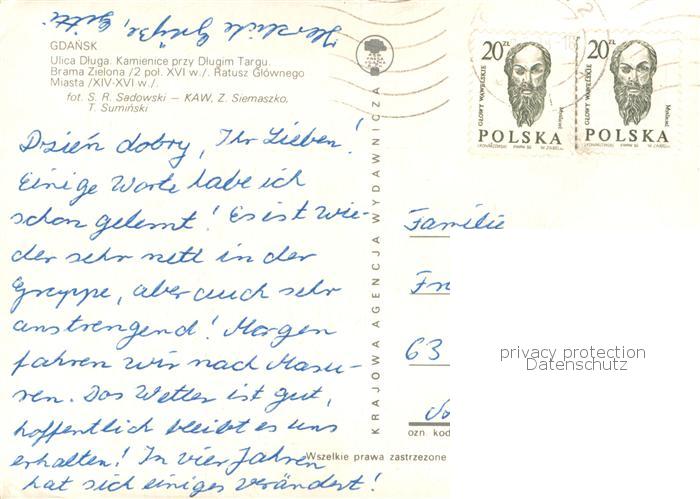 Herzliche Grüße, Gitti
GDAŃSK
Ulica Długa. Kamienice przy Długim Targu.
Brama Zielona /2 poł. XVI w./. Ratusz Głównego
Miasta /XIV-XVI w./.
fot. S. R. Sadowski — KAW, Z. Siemaszko,
T. Sumiński
Dzień dobry, Ihr Lieben!
Einige Worte habe ich
schon gelernt! Es ist wie-
der sehr nett in der
Gruppe, aber auch sehr
anstrengend! Morgen
fahren wir nach Masu-
ren. Das Wetter ist gut,
hoffentlich bleibt es uns
erhalten! In vier Jahren
hat sich einiges verändert!
KRAJOWA AGENCJA WYDAWNICZA
20 ZŁ
GŁOWY WAWELSKIE
POLSKA
20 ZŁ
GŁOWY WAWELSKIE
POLSKA
Familie
63
ozn. kod
Wszelkie prawa zastrzeżone
privacy protection
Datenschutz